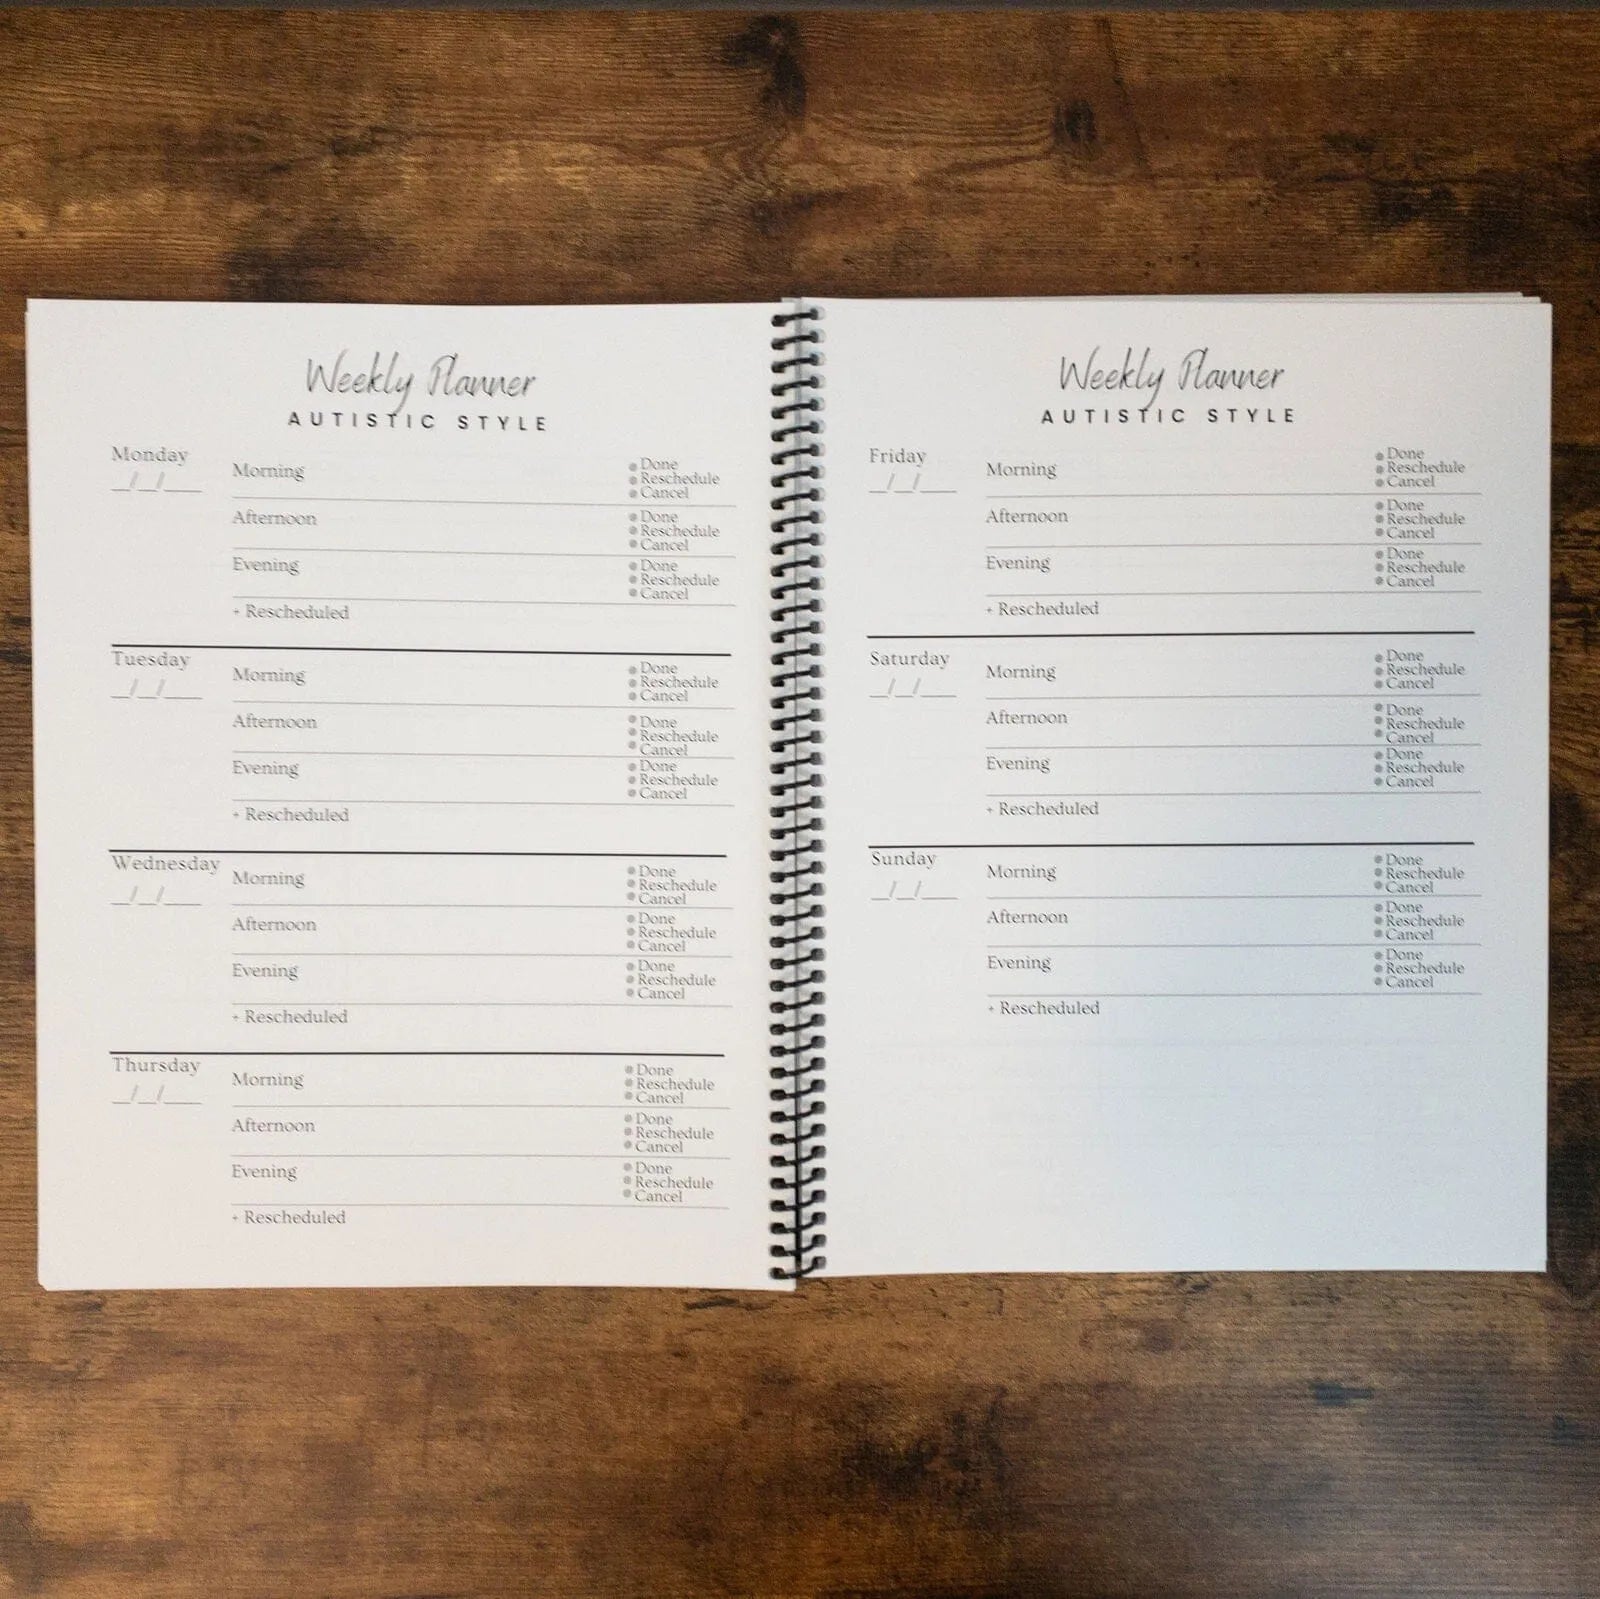 Weekly Planner
AUTISTIC STYLE
Monday
_/_/___
Morning
Done
Reschedule
Cancel
Afternoon
Done
Reschedule
Cancel
Evening
Done
Reschedule
Cancel
+ Rescheduled
Tuesday
_/_/___
Morning
Done
Reschedule
Cancel
Afternoon
Done
Reschedule
Cancel
Evening
Done
Reschedule
Cancel
+ Rescheduled
Wednesday
_/_/___
Morning
Done
Reschedule
Cancel
Afternoon
Done
Reschedule
Cancel
Evening
Done
Reschedule
Cancel
+ Rescheduled
Thursday
_/_/___
Morning
Done
Reschedule
Cancel
Afternoon
Done
Reschedule
Cancel
Evening
Done
Reschedule
Cancel
+ Rescheduled
Weekly Planner
AUTISTIC STYLE
Friday
_/_/___
Morning
Done
Reschedule
Cancel
Afternoon
Done
Reschedule
Cancel
Evening
Done
Reschedule
Cancel
+ Rescheduled
Saturday
_/_/___
Morning
Done
Reschedule
Cancel
Afternoon
Done
Reschedule
Cancel
Evening
Done
Reschedule
Cancel
+ Rescheduled
Sunday
_/_/___
Morning
Done
Reschedule
Cancel
Afternoon
Done
Reschedule
Cancel
Evening
Done
Reschedule
Cancel
+ Rescheduled